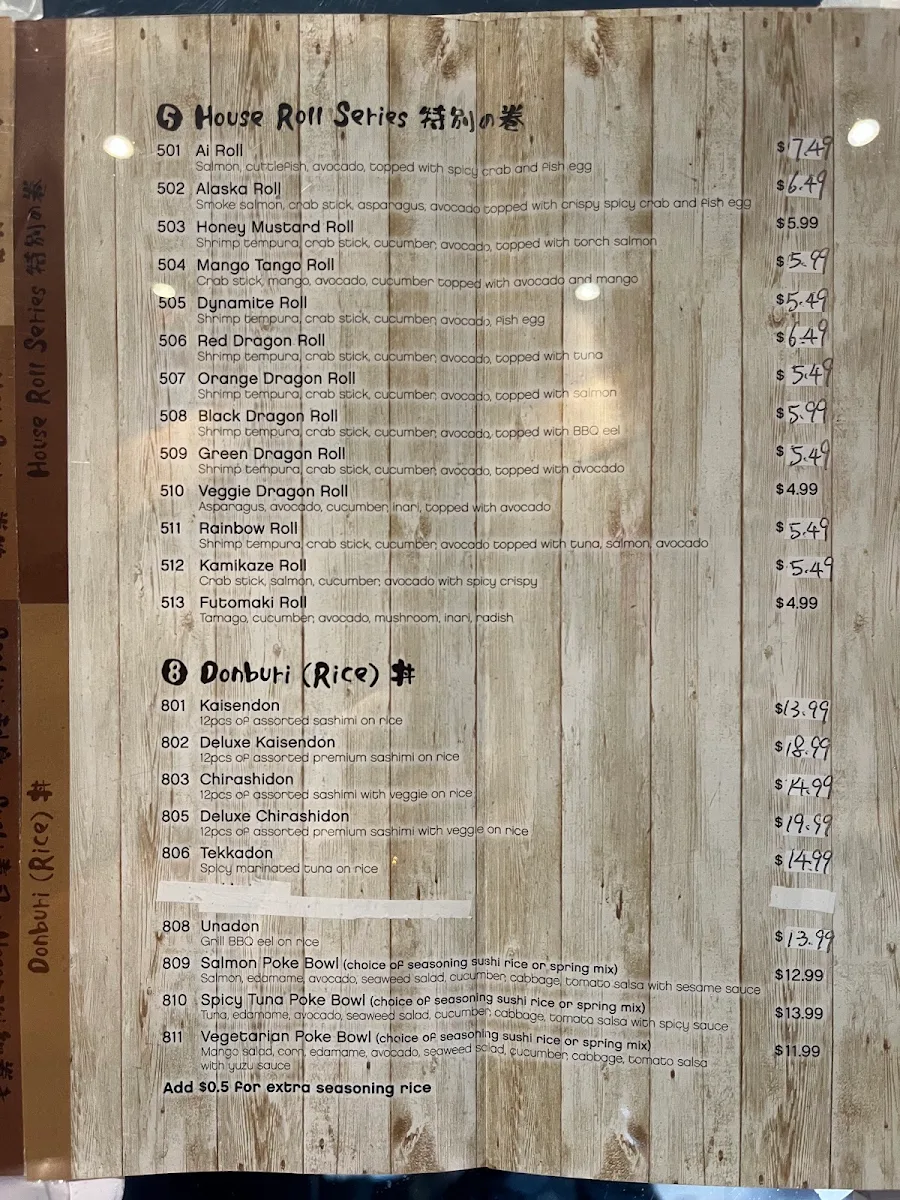 5 House Roll Series 特別の巻
501 Ai Roll $7.49
Salmon, cuttlefish, avocado, topped with spicy crab and fish egg
502 Alaska Roll $6.49
Smoke salmon, crab stick, asparagus, avocado topped with crispy spicy crab and fish egg
503 Honey Mustard Roll $5.99
Shrimp tempura, crab stick, cucumber, avocado, topped with torch salmon
504 Mango Tango Roll $5.99
Crab stick, mango, avocado, cucumber topped with avocado and mango
505 Dynamite Roll $5.49
Shrimp tempura, crab stick, cucumber, avocado, fish egg
506 Red Dragon Roll $6.49
Shrimp tempura, crab stick, cucumber, avocado, topped with tuna
507 Orange Dragon Roll $5.49
Shrimp tempura, crab stick, cucumber, avocado, topped with salmon
508 Black Dragon Roll $5.99
Shrimp tempura, crab stick, cucumber, avocado, topped with BBQ eel
509 Green Dragon Roll $5.49
Shrimp tempura, crab stick, cucumber, avocado, topped with avocado
510 Veggie Dragon Roll $4.99
Asparagus, avocado, cucumber, inari, topped with avocado
511 Rainbow Roll $5.49
Shrimp tempura, crab stick, cucumber, avocado topped with tuna, salmon, avocado
512 Kamikaze Roll $5.49
Crab stick, salmon, cucumber, avocado with spicy crispy
513 Futomaki Roll $4.99
Tamago, cucumber, avocado, mushroom, inari, radish
8 Donburi (Rice) 丼
801 Kaisendon $13.99
12pcs of assorted sashimi on rice
802 Deluxe Kaisendon $18.99
12pcs of assorted premium sashimi on rice
803 Chirashidon $14.99
12pcs of assorted sashimi with veggie on rice
805 Deluxe Chirashidon $19.99
12pcs of assorted premium sashimi with veggie on rice
806 Tekkadon $14.99
Spicy marinated tuna on rice
808 Unadon $13.99
Grill BBQ eel on rice
809 Salmon Poke Bowl (choice of seasoning sushi rice or spring mix) $12.99
Salmon, edamame, avocado, seaweed salad, cucumber, cabbage, tomato salsa with sesame sauce
810 Spicy Tuna Poke Bowl (choice of seasoning sushi rice or spring mix) $13.99
Tuna, edamame, avocado, seaweed salad, cucumber, cabbage, tomato salsa with spicy sauce
811 Vegetarian Poke Bowl (choice of seasoning sushi rice or spring mix) $11.99
Mango salad, corn, edamame, avocado, seaweed salad, cucumber, cabbage, tomato salsa
with yuzu sauce
Add $0.5 for extra seasoning rice
House Roll Series 特別の巻
Donburi (Rice) 丼